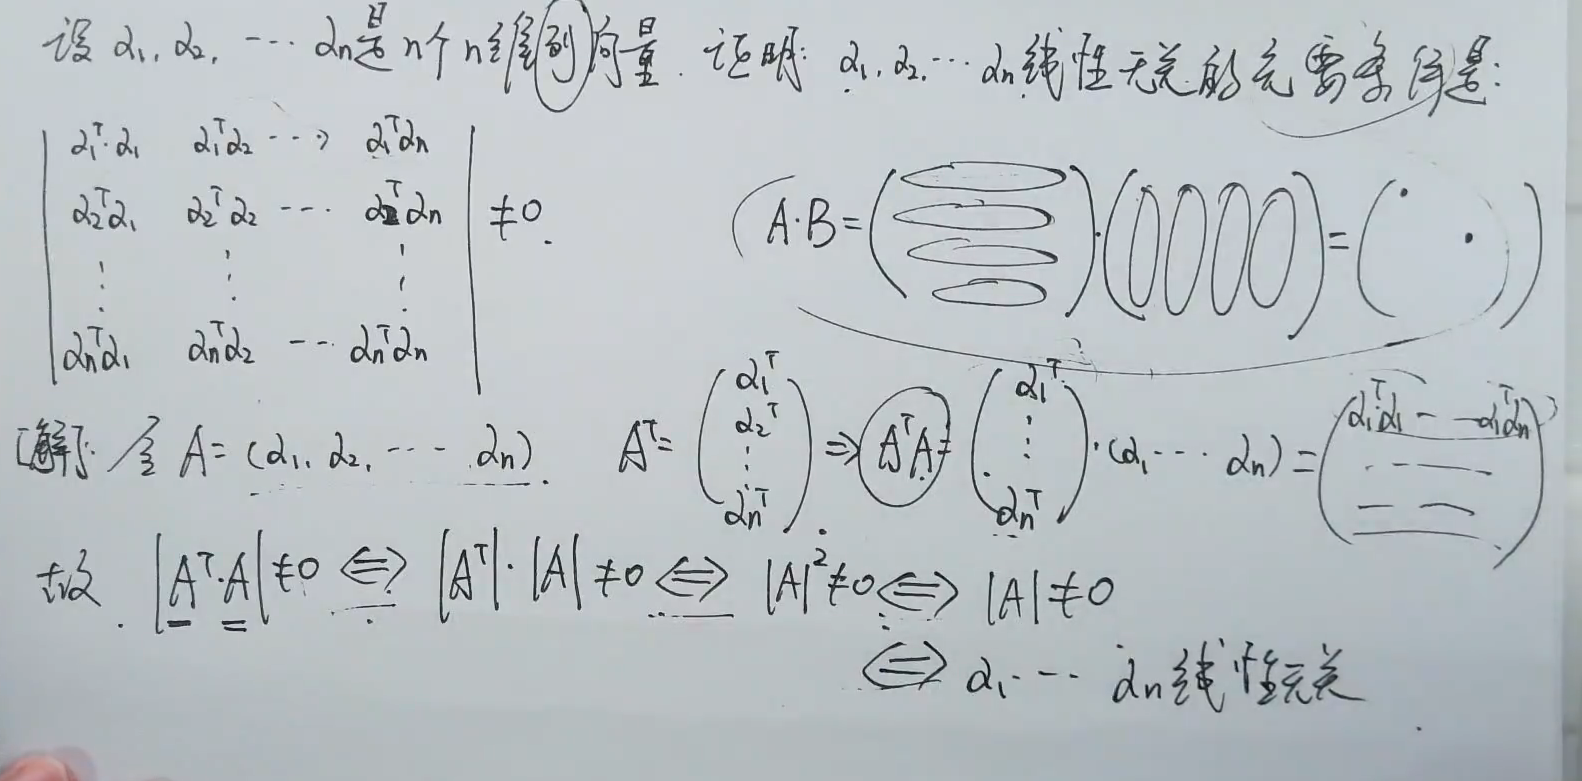 设 α₁, α₂, ⋯ αₙ是n个n维列向量. 证明: α₁, α₂, ⋯ αₙ线性无关的充要条件是:
| α₁ᵀ·α₁ α₁ᵀα₂ ⋯ α₁ᵀαₙ |
| α₂ᵀα₁ α₂ᵀα₂ ⋯ α₂ᵀαₙ | ≠0.
| ⋮ ⋮ ⋮ |
| αₙᵀα₁ αₙᵀα₂ ⋯ αₙᵀαₙ |
A·B= ( ) · ( ) = ( )
[解]: 令 A=(α₁, α₂, ⋯ αₙ). Aᵀ=(α₁ᵀ α₂ᵀ ⋮ αₙᵀ). ⇒ AᵀA=(α₁ᵀ ⋮ αₙᵀ)·(α₁ ⋯ αₙ)=(α₁ᵀα₁ – – α₁ᵀαₙ)
故 |Aᵀ·A|≠0 ⇔ |Aᵀ|·|A|≠0 ⇔ |A|²≠0 ⇔ |A|≠0
⇔ α₁ ⋯ αₙ线性无关